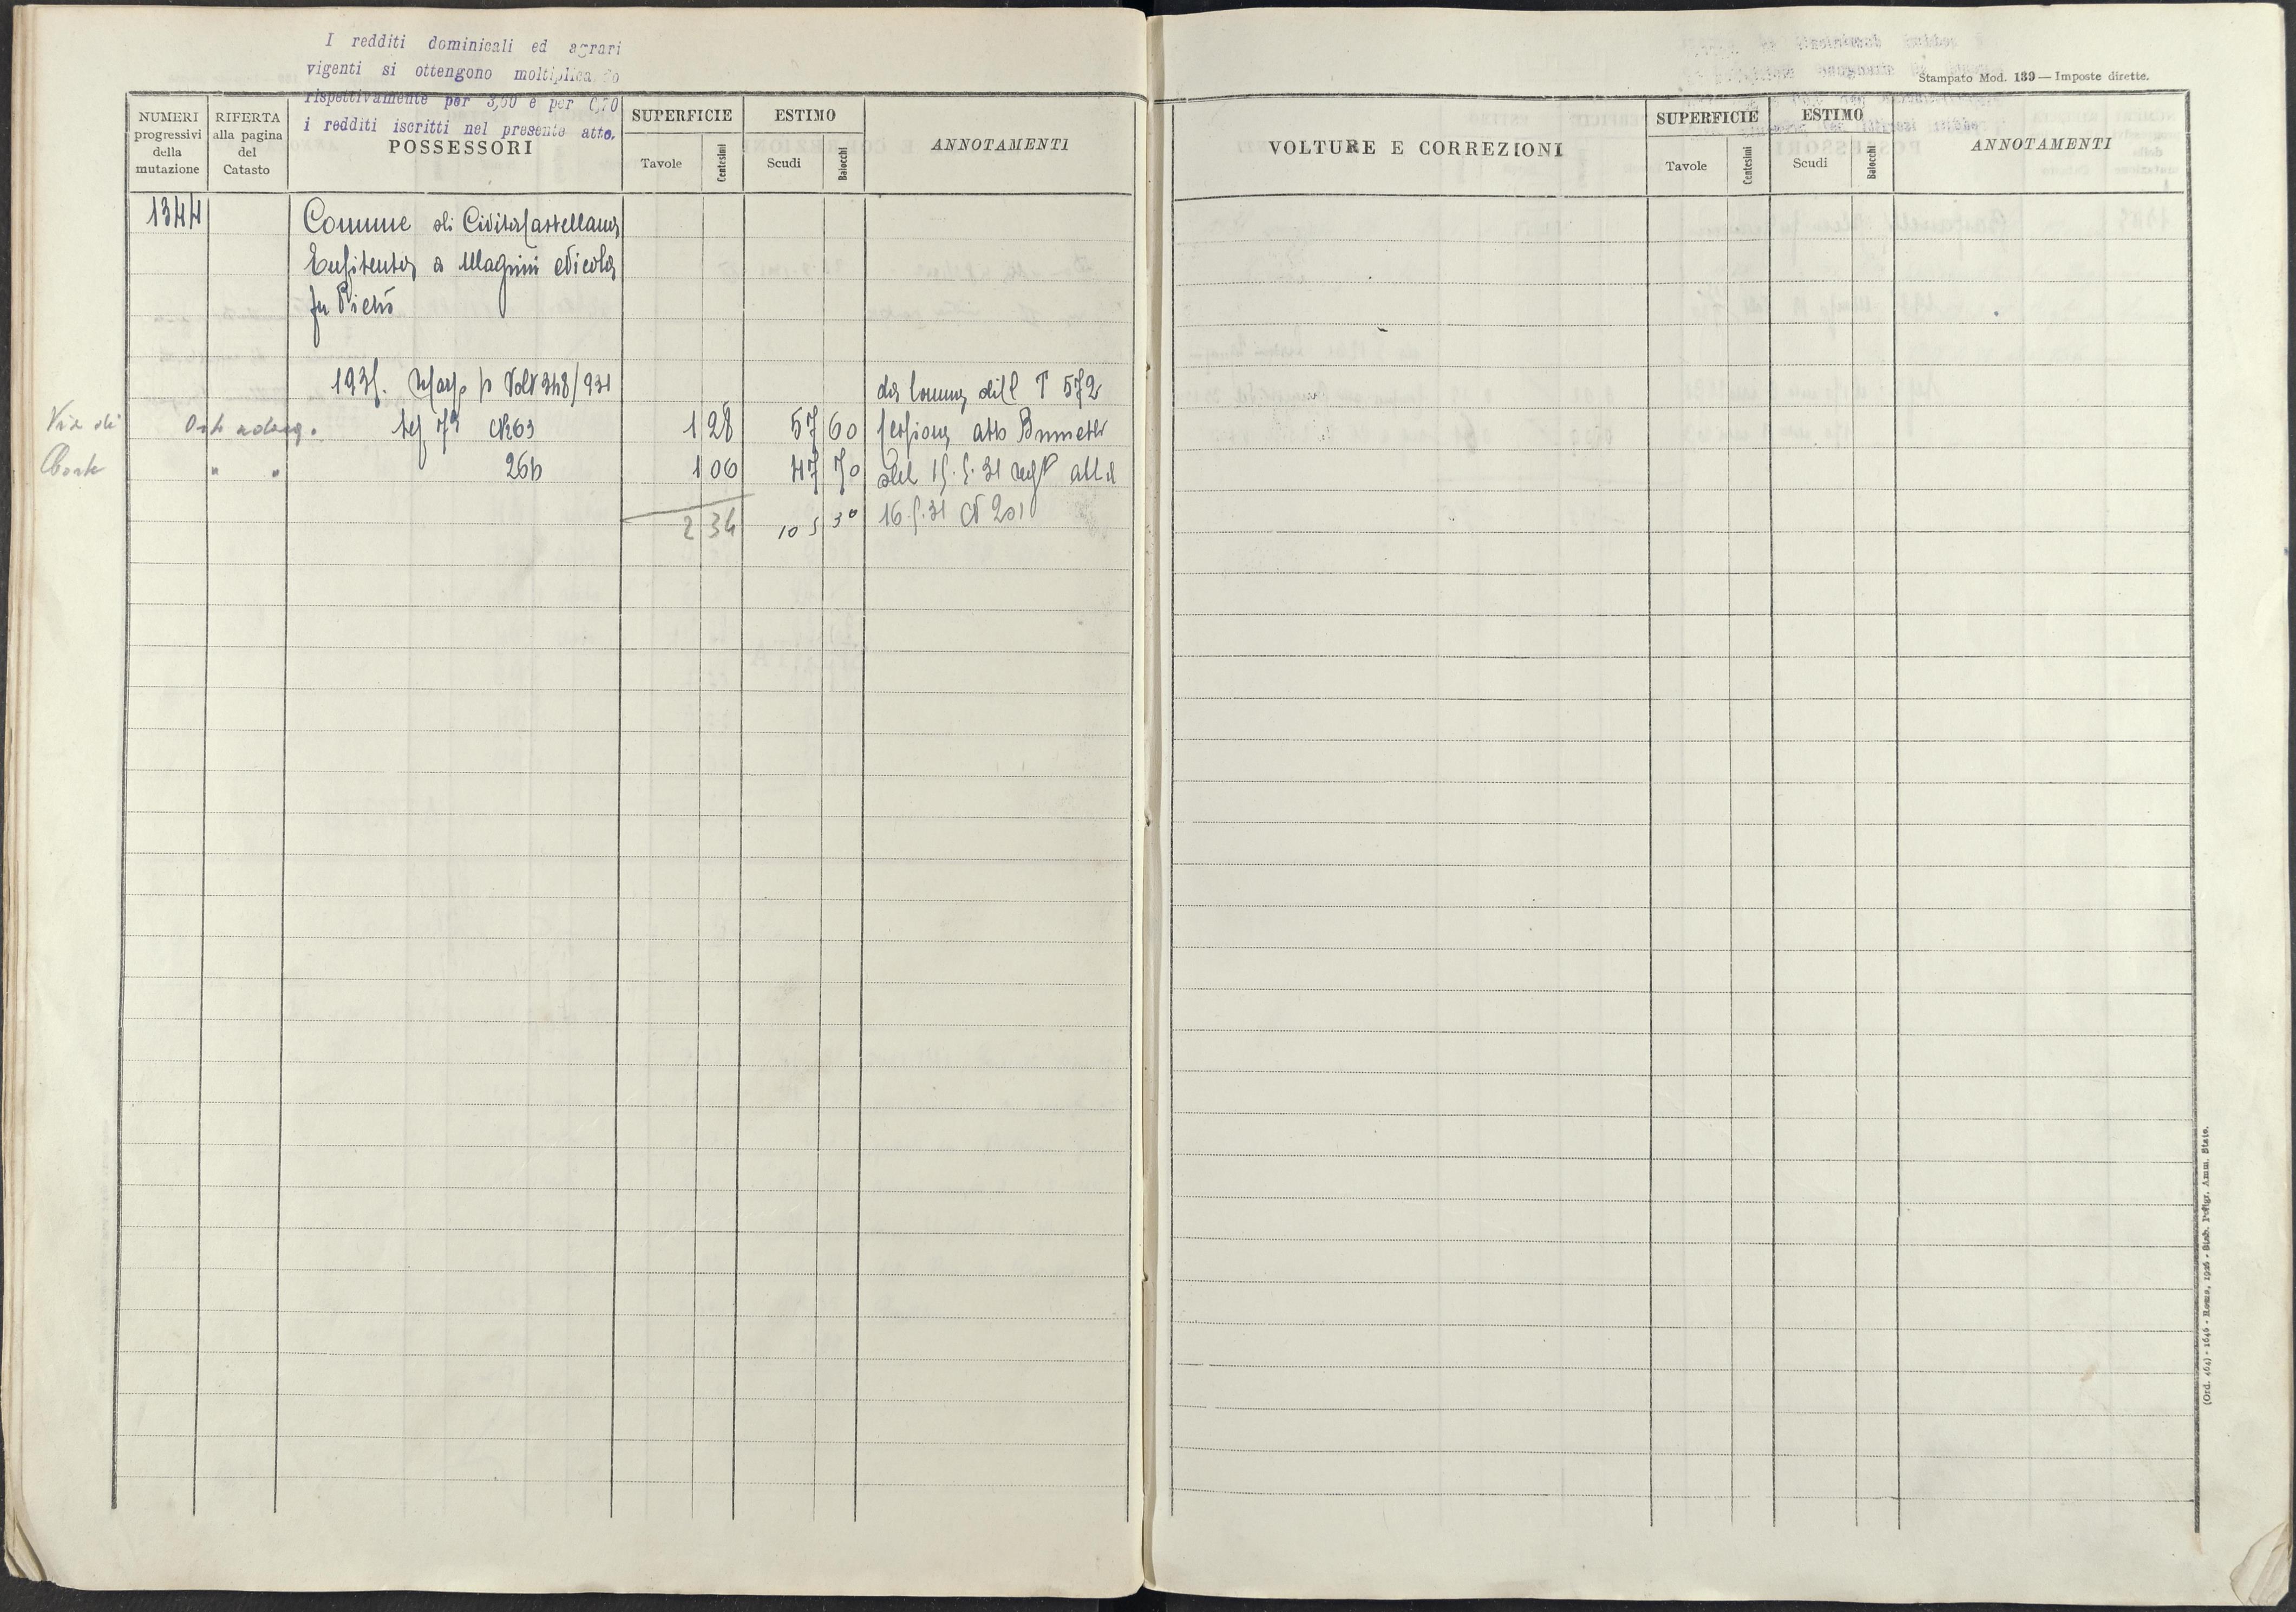 I redditi dominicali ed agrari
vigenti si ottengono moltiplicando
rispettivamente per 3,60 e per 0,70
i redditi iscritti nel presente atto.
NUMERI progressivi della mutazione
RIFERTA alla pagina del Catasto
POSSESSORI
SUPERFICIE
Tavole
Centesimi
ESTIMO
Scudi
Baiocchi
ANNOTAMENTI
1344
Comune di Civita Castellana
Enfiteuta a Magnini Nicola
fu Pietro
1931. p Volt 348/931
da Comune dill P 572
Via di Orte adacq. Sez 7ª N 263 1 28 57 60 Cessione atto Brunetti
" " 26b 1 06 47 70 del 15.5.31 regº all il
2 34 105 30 16.5.31 N 201
Stampato Mod. 139 — Imposte dirette.
VOLTURE E CORREZIONI
SUPERFICIE
Tavole
Centesimi
ESTIMO
Scudi
Baiocchi
ANNOTAMENTI
(Ord. 464) - 1646 - Roma, 1926 - Stab. Poligr. Amm. Stato.